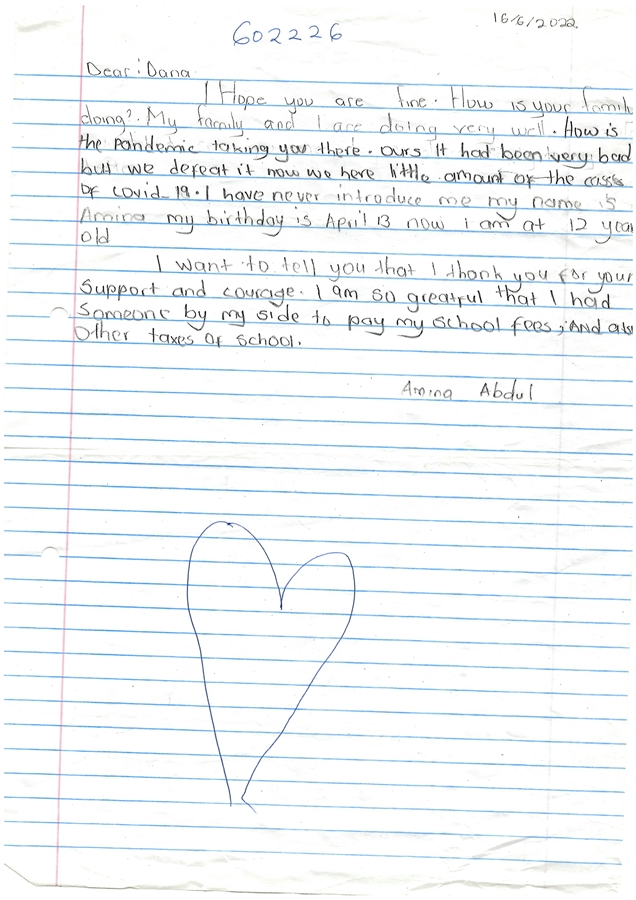 602226
16/6/2022
Dear: Dana
I Hope you are fine. How is your family
doing?. My family and I are doing very well. How is
the pandemic taking you there. ours It had been very bad
but we defeat it now we here little amount of the cases
Of covid-19. I have never introduce me my name is
Amina my birthday is April 13 now i am at 12 year
old
I want to tell you that I thank you for your
Support and courage. I am so greatful that I had
Someone by my side to pay my school fees, And
Other taxes of school.
Amina Abdul